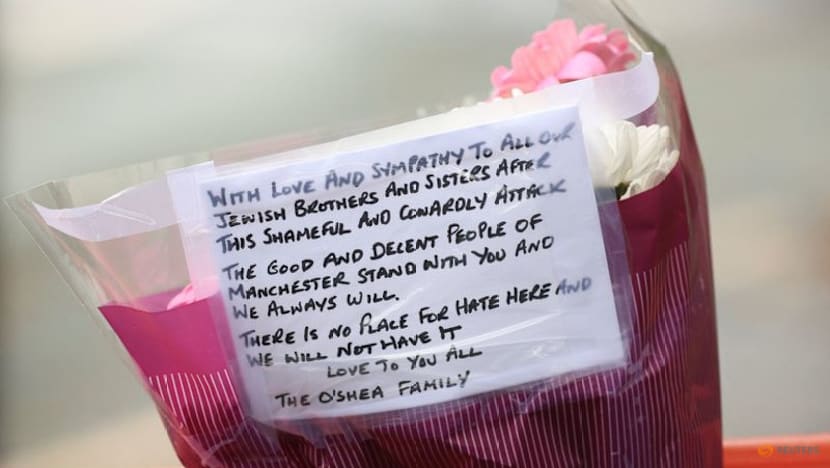 WITH LOVE AND SYMPATHY TO ALL OUR
JEWISH BROTHERS AND SISTERS AFTER
THIS SHAMEFUL AND COWARDLY ATTACK
THE GOOD AND DECENT PEOPLE OF
MANCHESTER STAND WITH YOU AND
WE ALWAYS WILL.
THERE IS NO PLACE FOR HATE HERE AND
WE WILL NOT HAVE IT
LOVE TO YOU ALL
THE O'SHEA FAMILY
REUTERS